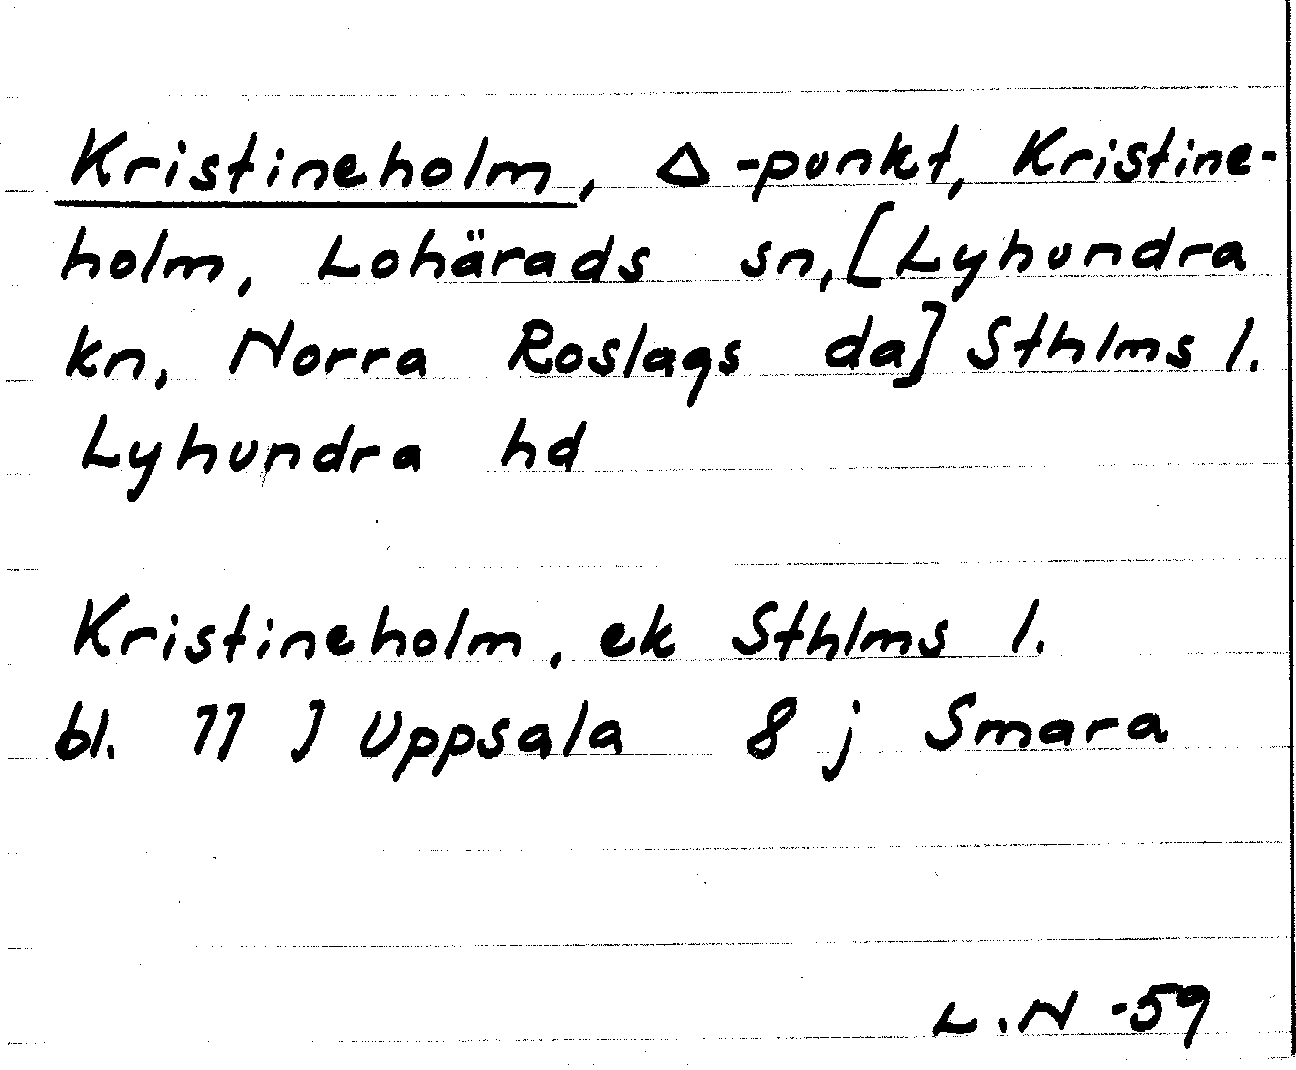 Kristineholm, Δ -punkt, Kristine-
holm, Lohärads sn, [Lyhundra
kn, Norra Roslags da] Sthlms l.
Lyhundra hd
Kristineholm, ek Sthlms l.
bl. 11 J Uppsala 8 j Smara
L.N -59